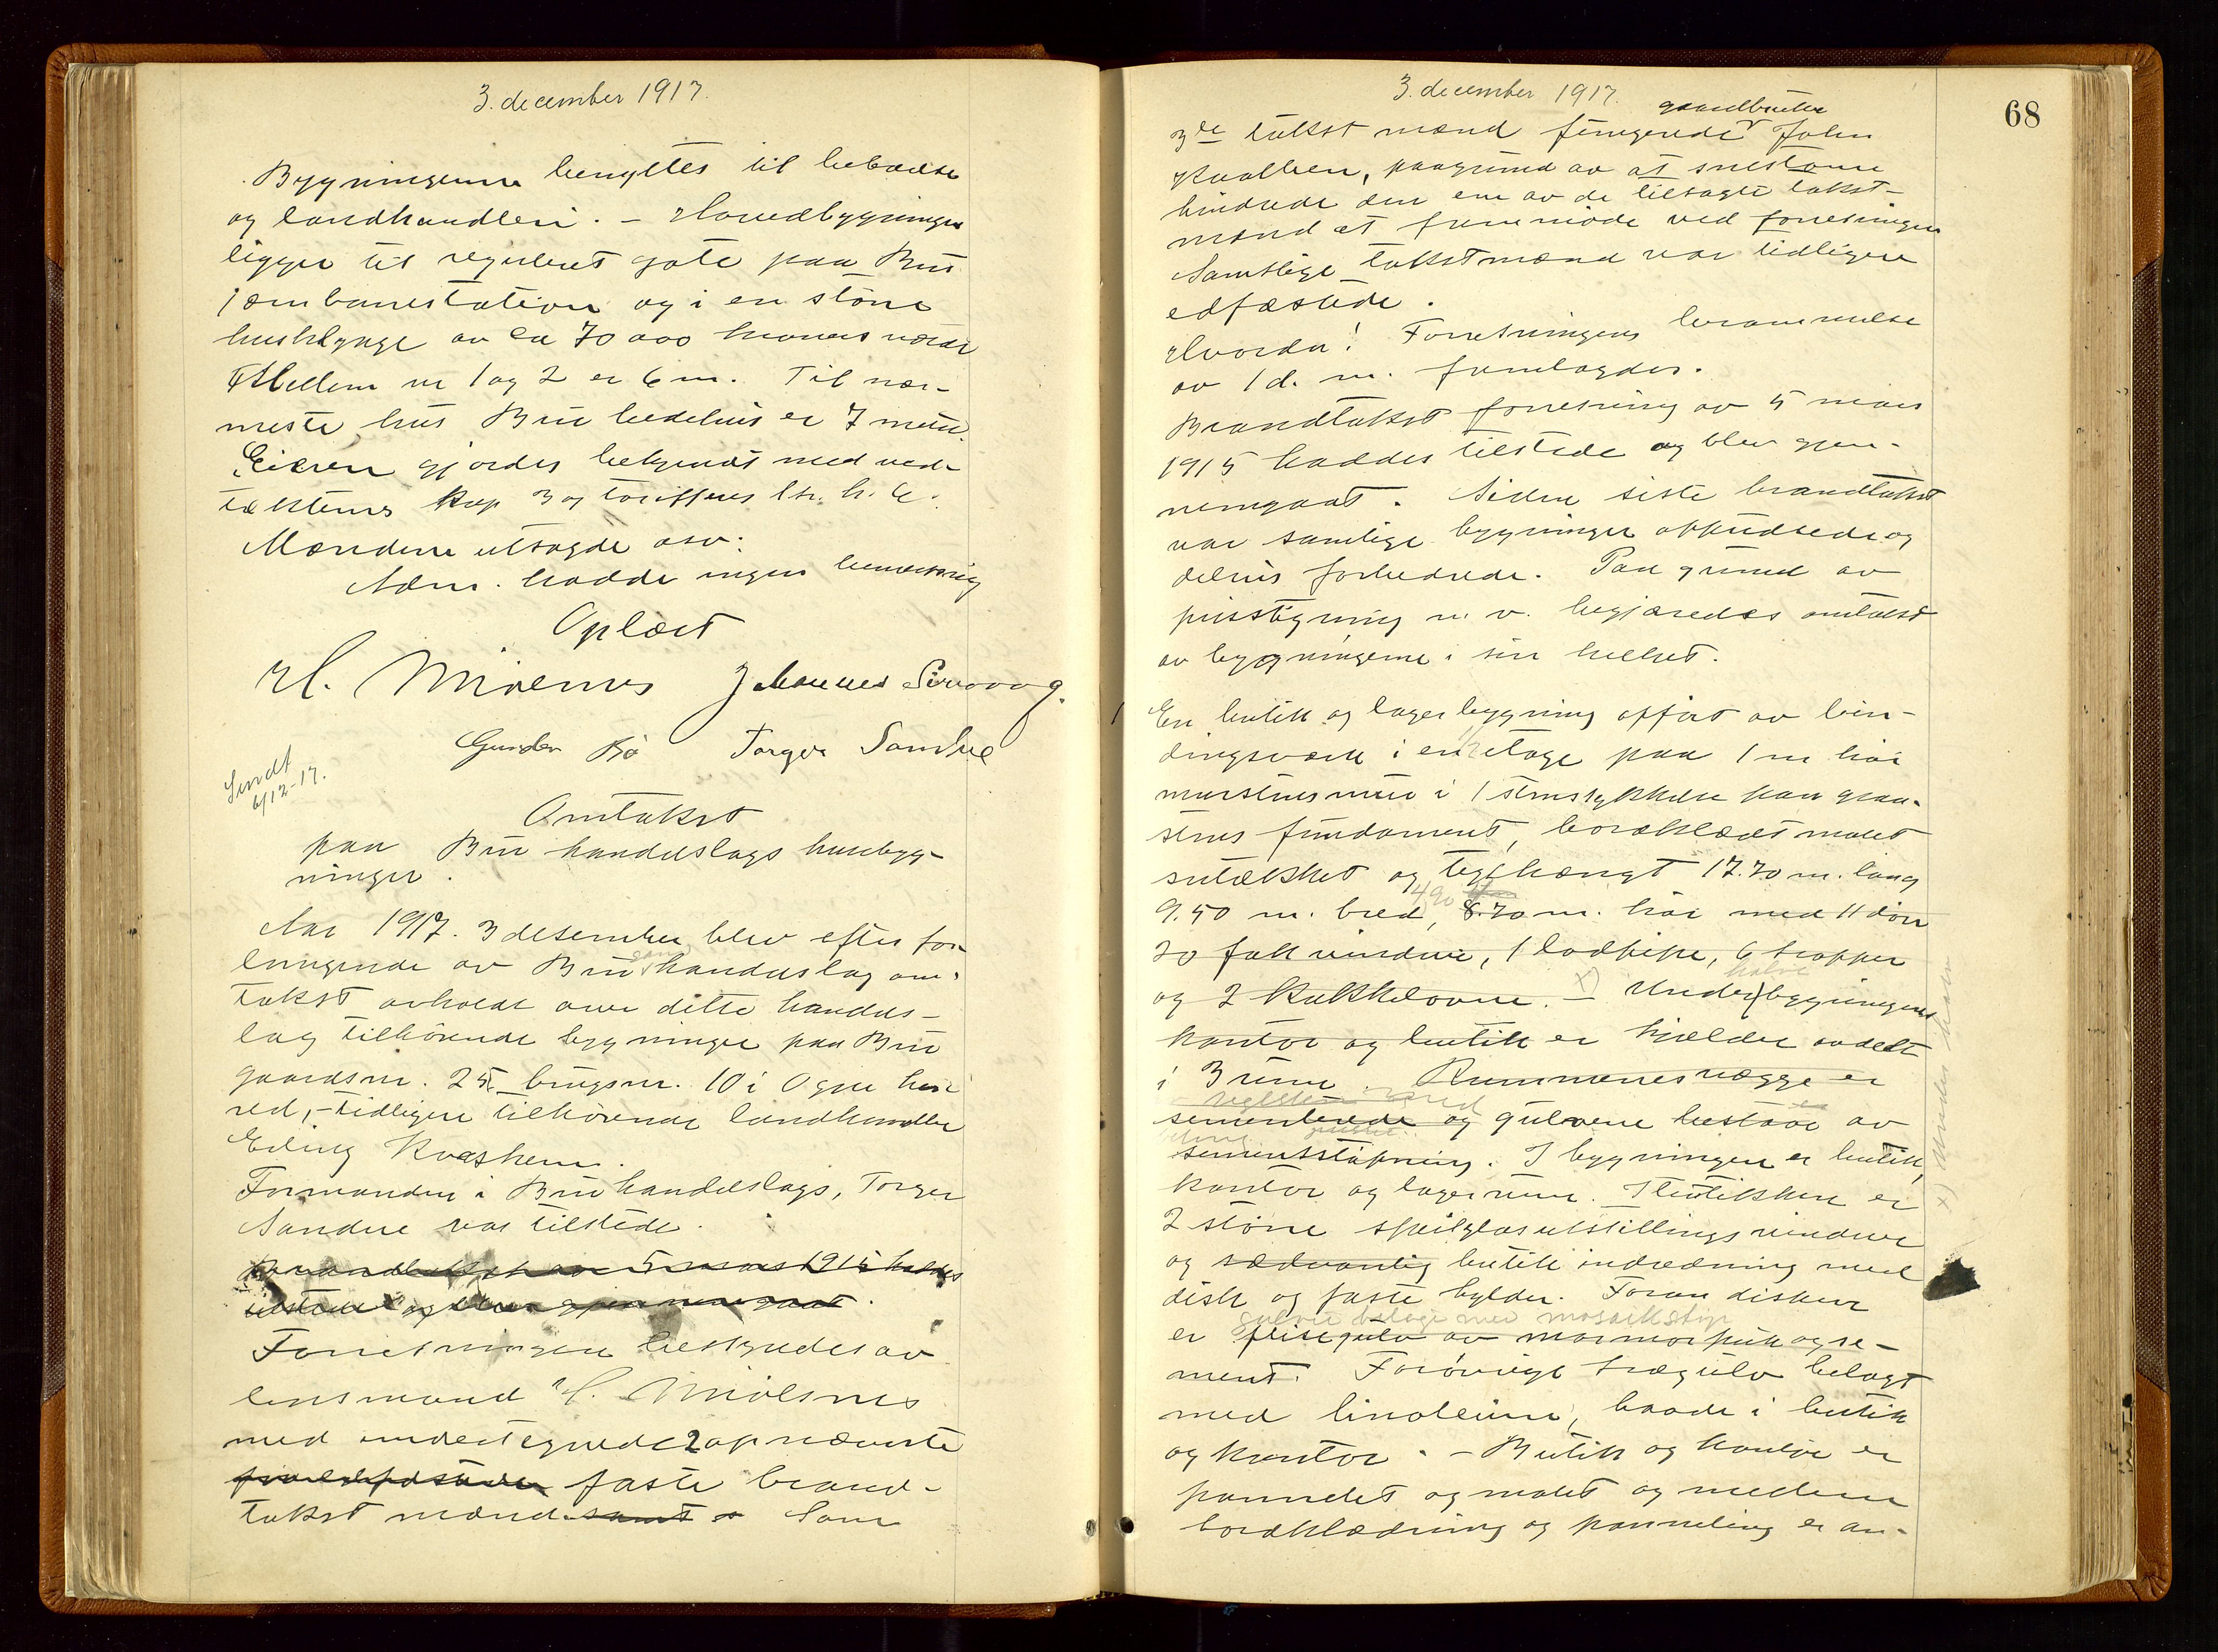 3. december 1917.
Bygningerne benyttes til beboelse
og landhandleri. – Hovedbygningen
ligger til reguleret gate paa Bru
jernbanestation og i en større
husklynge av ca 70 000 kroners værdi
Mellem nr 1 og 2 er 6 m. Til nær-
meste hus Bru bedehus er 7 meter.
Eieren gjordes bekjendt med ved-
tækternes kap 3 og tariffens
Mændene utsagde osv.
Adm. hadde ingen bemerkning
Oplæst
H. Mirenes Johannes
Gunder Bø Torger Sandve
Sendt
6/12-17.
Omtakst
paa Bru handelslags husbyg-
ninger.
Aar 1917. 3 desember blev efter for-
langende av Bru handelslag om-
takst avholdt over dette handels-
lag tilhörende bygninger paa Bru
gaardsnr. 25 brugsnr. 10 i Ogne her-
red, – tidligere tilhörende landhandler
Erling Kvashem.
Formanden i Bru handelslags, Torger
Sandve var tilstede.
Brandtakst av 5 mars 1915 haddes
tilstede og blev gjennemgaat.
Forretningen bestyredes av
lensmand H.
med undertegnede 2 opnævnte
faste brand-
takst mænd samt Som
3. december 1917.
68
gaardbruker
3de takst mand fungerede John
Kvalben, paagrund av at snestorm
hindrede den ene av de tilsagte takst-
mænd at fremmöde ved forretningen
Samtlige takstmænd var tidligere
edfæstede.
Hvorda! Forretningens berammelse
av 1 d. m. fremlagdes.
Brandtakst forretning av 5 mars
1915 haddes tilstede og blev gjen-
nemgaat. Siden siste brandtakst
var samlige bygninger oppudsede og
delvis forbedrede. Paa grund av
prisstigning m. v. begjæredes omtakst
av bygningerne i sin helhet.
1 En butik og lagerbygning opført av bin-
dingsverk i en etage paa 1 m høi
murstensmur i 1 stens tykkelse paa graa-
stens fundament, bordklædt malet
sutækket og teglhængt 17.70 m. lang
4,90
9.50 m. bred, 8.70 m. høi med 11 dører
20 fall vinduer, 1 lodpipe, 6 trapper
halve
og 2 kakkelovne. – x) Under bygningens
kontor og butik er kjælder avdelt
i 3 rum. Rummenes vægge er
sementerede og gulvene bestaar av
sementstøpning. I bygningen er butik,
kontor og lagerrum. I butikken er
2 større speilglas utstillings vinduer
og sædvanlig butik indredning med
disk og faste hylder. Foran disken
gulvet belagt med mosaikstøp
er flisegulv av marmorpuk og se-
ment. Forøvrigt trægulv belagt
med linoleum, baade i butik
og kontor. – Butik og kontor er
pannelet og malet og mellem
bordklædning og panneling er an-